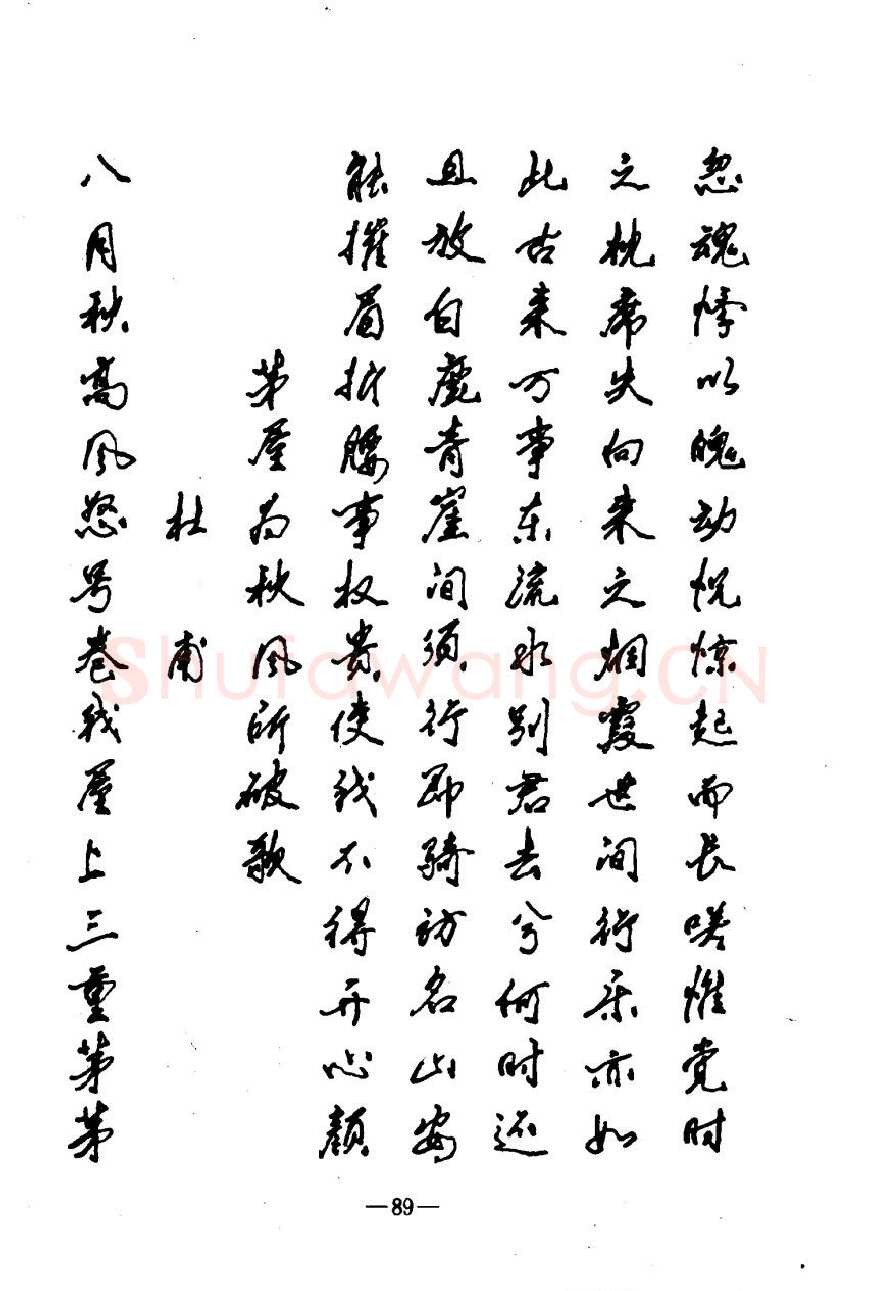 忽魂悸以魄动怳惊起而长嗟惟觉时
之枕席失向来之烟霞世间行乐亦如
此古来万事东流水别君去兮何时还
且放白鹿青崖间须行即骑访名山安
能摧眉折腰事权贵使我不得开心颜
茅屋为秋风所破歌
杜甫
八月秋高风怒号卷我屋上三重茅茅
—89—
Shufawang.CN